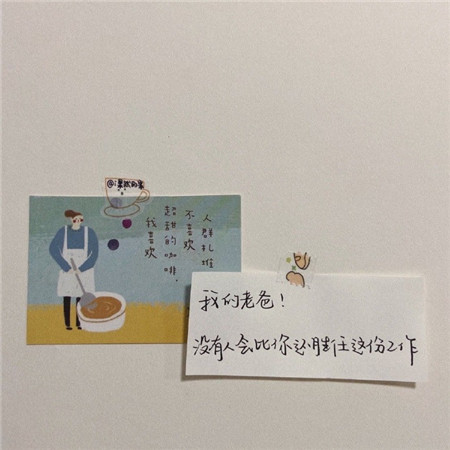 人群扎堆
不喜欢
超甜的咖啡，
我喜欢
我的老爸！
没有人会比你还胜任这份工作